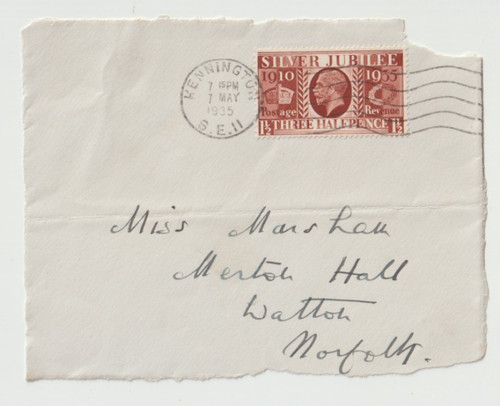 KENNINGTON
7 15PM
7 MAY
1935
S.E.11
SILVER JUBILEE
1910 1935
Postage Revenue
1½ THREE HALFPENCE 1½
Miss Marsham
Merton Hall
Watton
Norfolk.